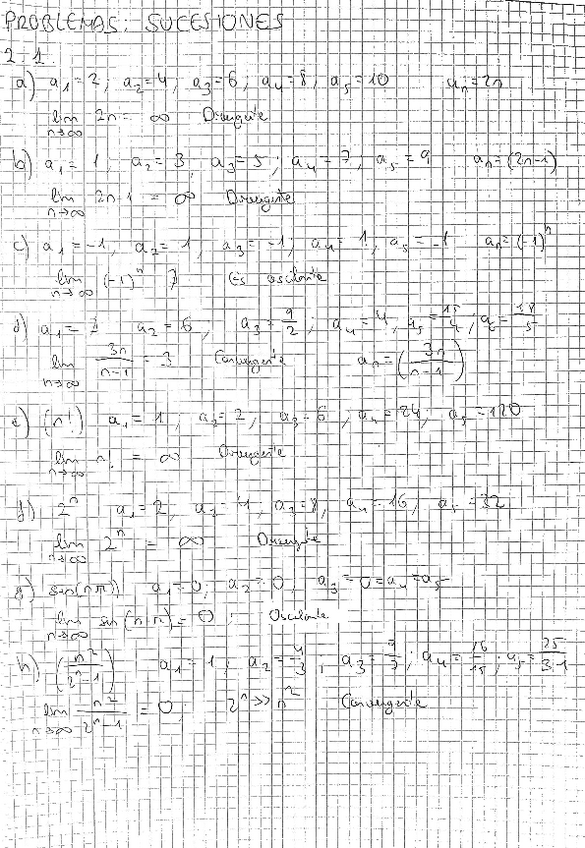 PROBLEMAS. SUCESIONES
2.1.
a) a₁=2, a₂=4, a₃=6, a₄=8, a₅=10 aₙ=2n
lim n→∞ 2n = ∞ Divergente
b) a₁=1, a₂=3, a₃=5, a₄=7, a₅=9 aₙ=(2n-1)
lim n→∞ 2n-1 = ∞ Divergente
c) a₁=-1, a₂=1, a₃=-1, a₄=1, a₅=-1 aₙ=(-1)ⁿ
lim n→∞ (-1)ⁿ ∄ Es oscilante
d) a₁= a₂=6, a₃=9/2, a₄=4, a₅=15/4, a₆=18/5
lim n→∞ 3n/(n-1) = 3 Convergente aₙ=(3n/(n-1))
e) (n!) a₁=1, a₂=2, a₃=6, a₄=24, a₅=120
lim n→∞ n! = ∞ Divergente
f) 2ⁿ a₁=2, a₂=4, a₃=8, a₄=16, a₅=32
lim n→∞ 2ⁿ = ∞ Divergente
g) sen(nπ) a₁=0, a₂=0, a₃=0=a₄=a₅
lim n→∞ sen(nπ)=0, Oscilante
h) (n²/(2ⁿ-1)) a₁=1, a₂=4/3, a₃=9/7, a₄=16/15, a₅=25/31
lim n→∞ n²/(2ⁿ-1) = 0, 2ⁿ>>n² Convergente